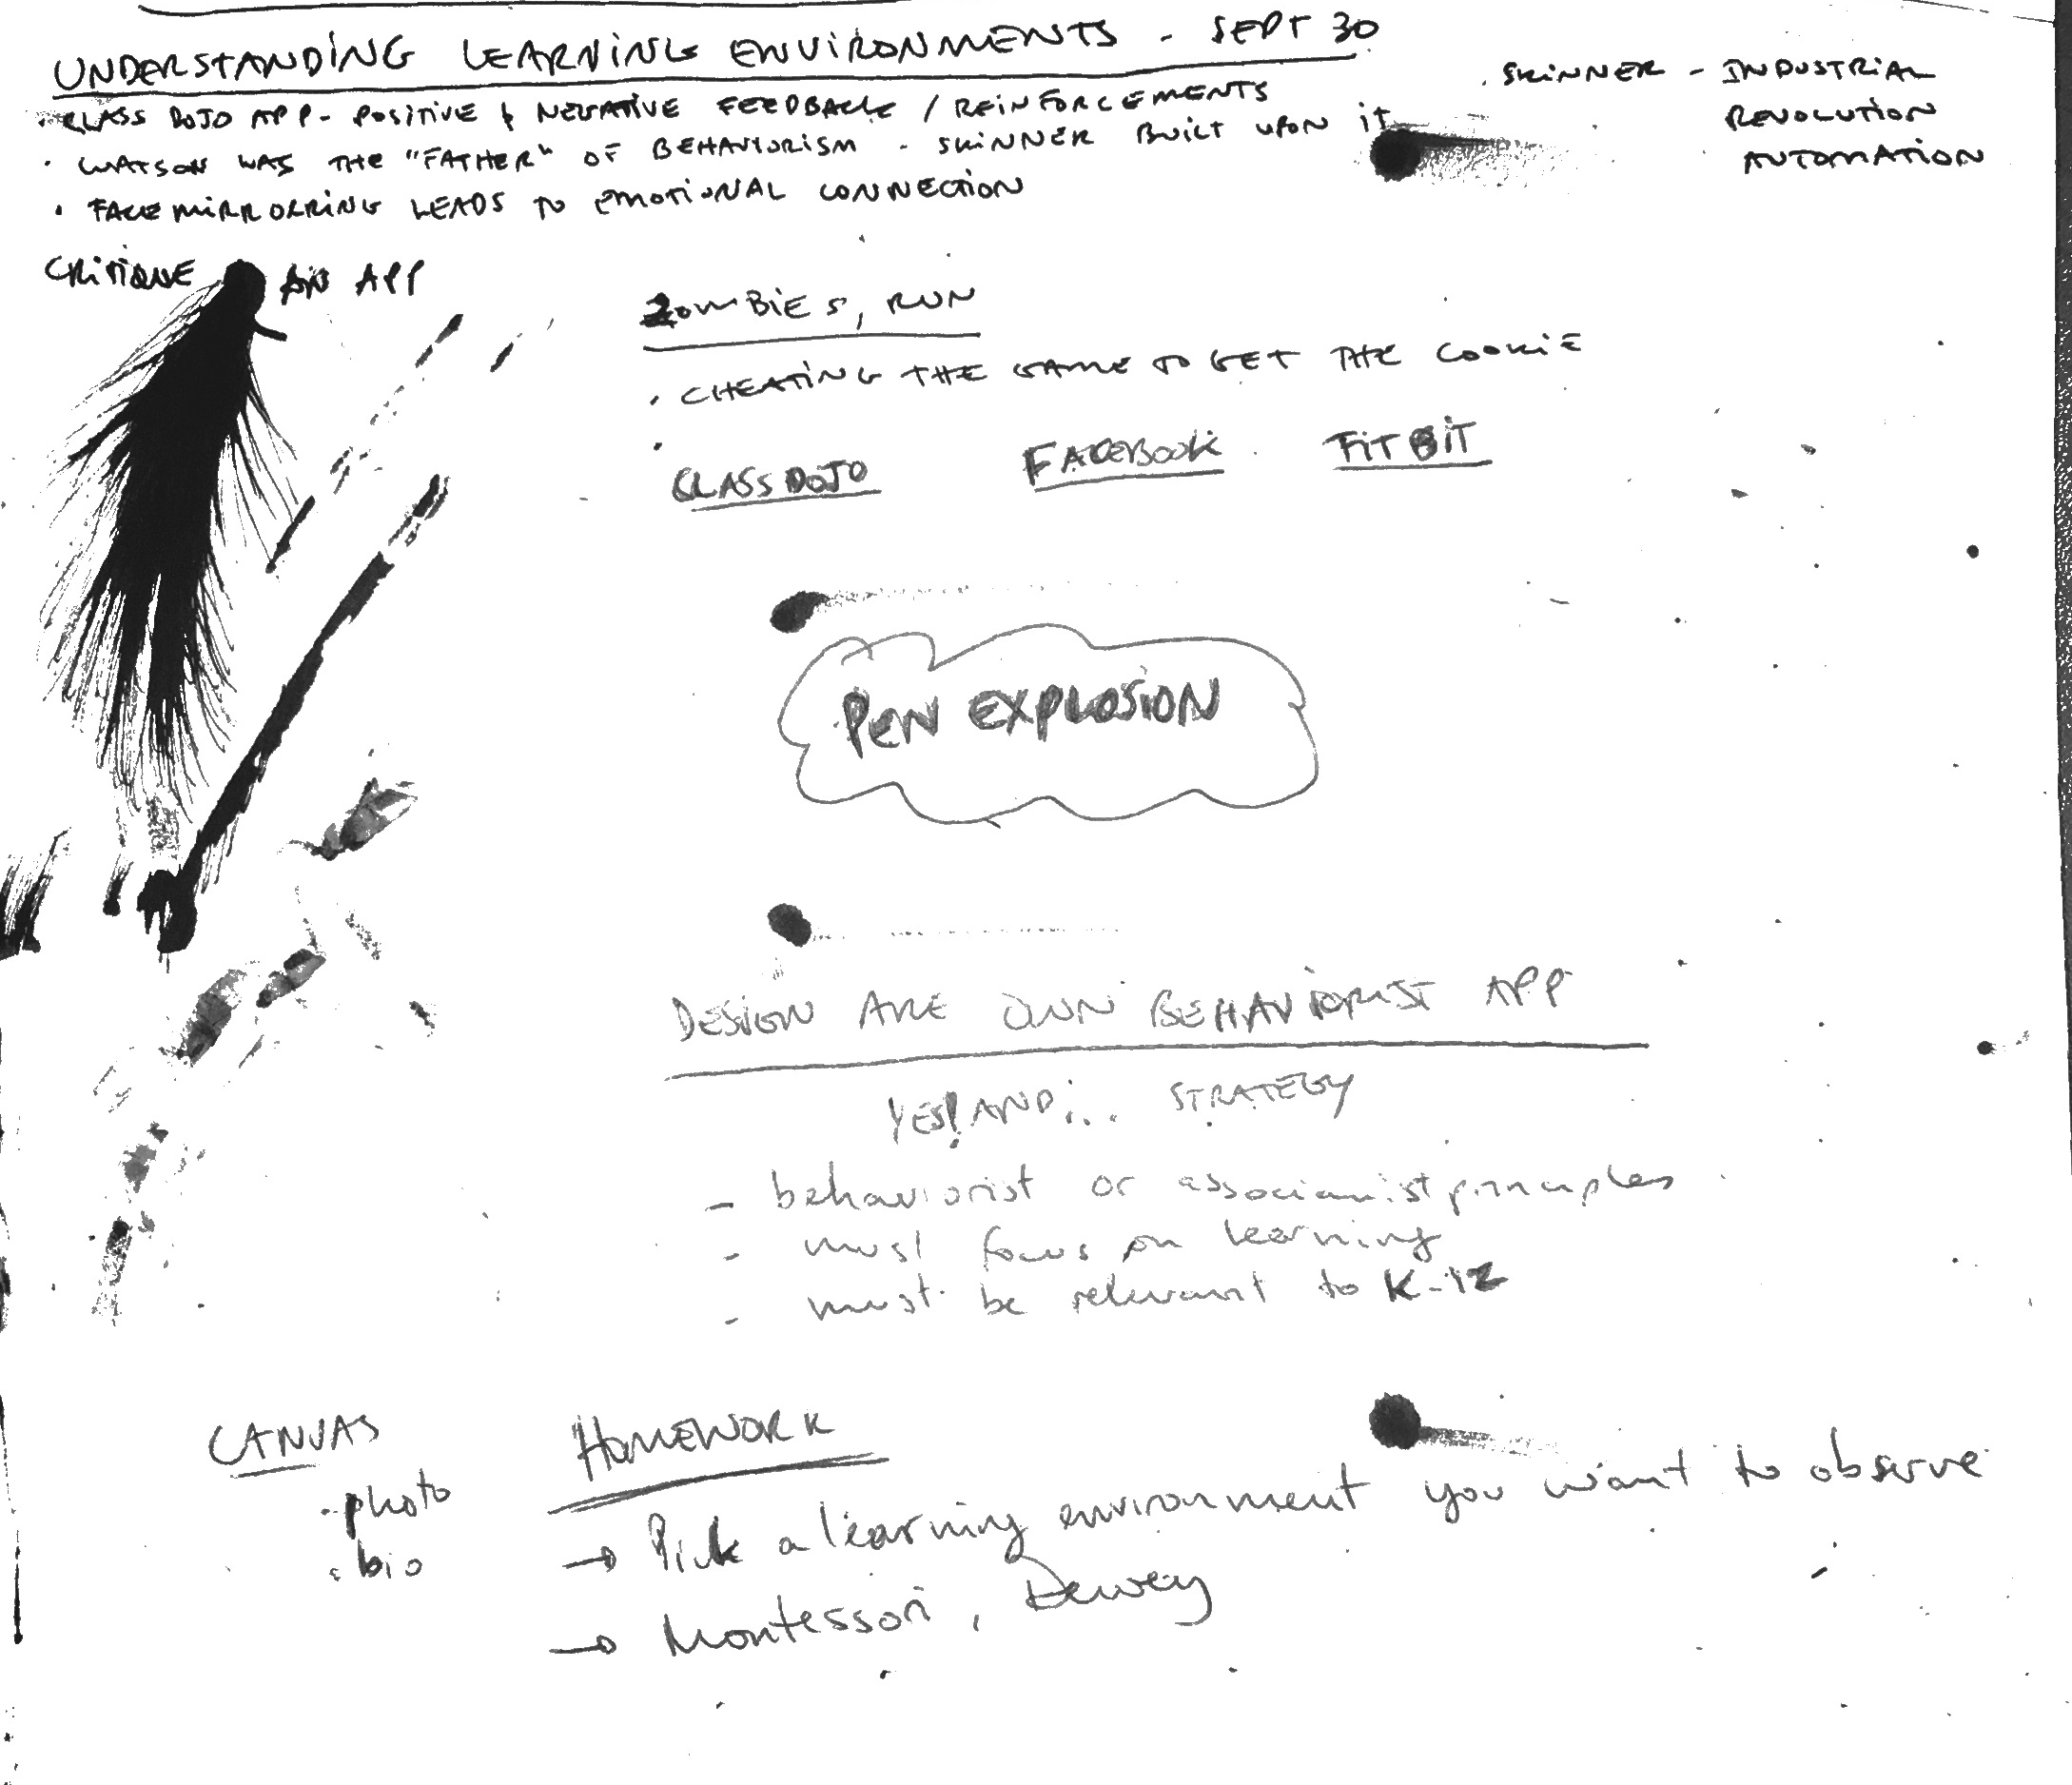 UNDERSTANDING LEARNING ENVIRONMENTS - SEPT 30
· CLASS DOJO APP - POSITIVE & NEGATIVE FEEDBACK / REINFORCEMENTS
· WATSON WAS THE "FATHER" OF BEHAVIORISM - SKINNER BUILT UPON it
· FACE MIRRORRING LEADS TO EMOTIONAL CONNECTION
· SKINNER - INDUSTRIAL
REVOLUTION
AUTOMATION
CRITIQUE AN APP
ZOMBIES, RUN
· CHEATING THE GAME TO GET THE COOKIE
·
CLASS DOJO FACEBOOK FITBIT
PEN EXPLOSION
DESIGN ARE OWN BEHAVIORIST APP
YES! AND... STRATEGY
- behaviorist or associanist principles
- must focus on learning
- must be relevant to K-12
CANVAS
· photo
· bio
HOMEWORK
→ Pick a learning environment you want to observe
→ Montessori, Dewey